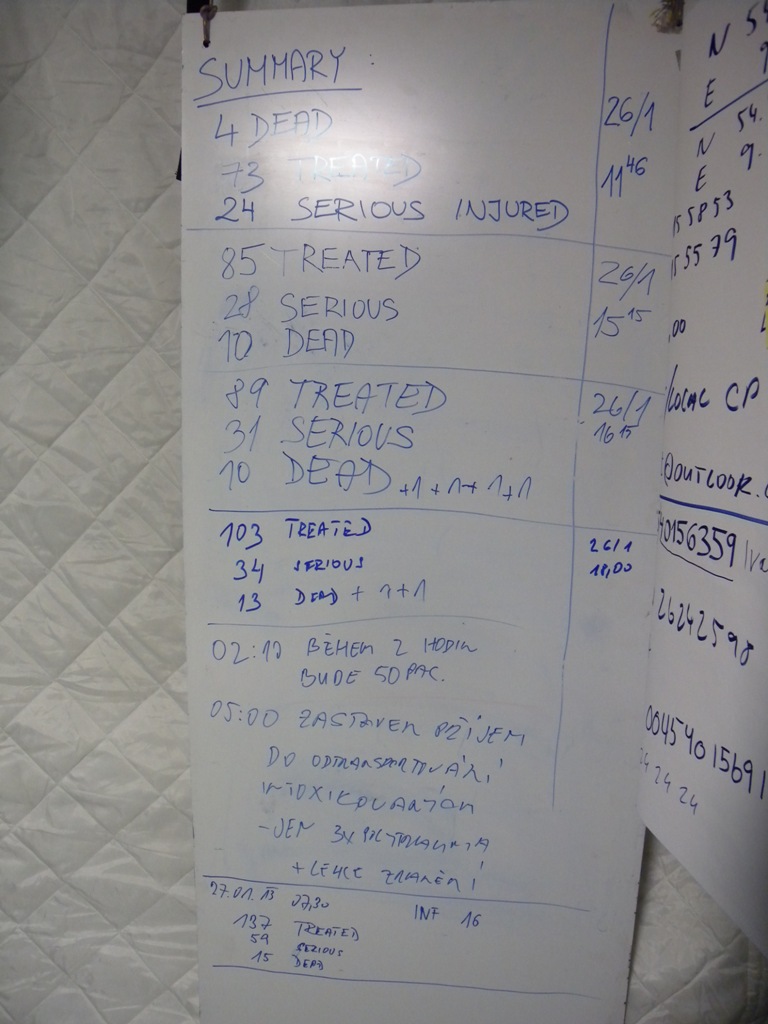 SUMMARY :
4 DEAD
73 TREATED
24 SERIOUS INJURED
26/1
11 46
85 TREATED
28 SERIOUS
10 DEAD
26/1
15 15
89 TREATED
31 SERIOUS
10 DEAD +1+1+1+1
26/1
16 15
103 TREATED
34 SERIOUS
13 DEAD + 1+1
26/1
18,00
02:10 BĚHEM 2 HODIN
BUDE 50 PAC.
05:00 ZASTAVEN PŘÍJEM
DO ODTRANSPORTOVÁNÍ
INTOXIKOVANÝCH
-JEN 3X
+ LEHCE ZRANĚNÍ
27.01.13 07,30 INF 16
137 TREATED
59 SERIOUS
15 DEAD
N 54
E 9
N 54.
E 9.
5853
5579
,00
LOCAL CP
@OUTLOOK.
0156359
26242598
00454015691
24 24 24